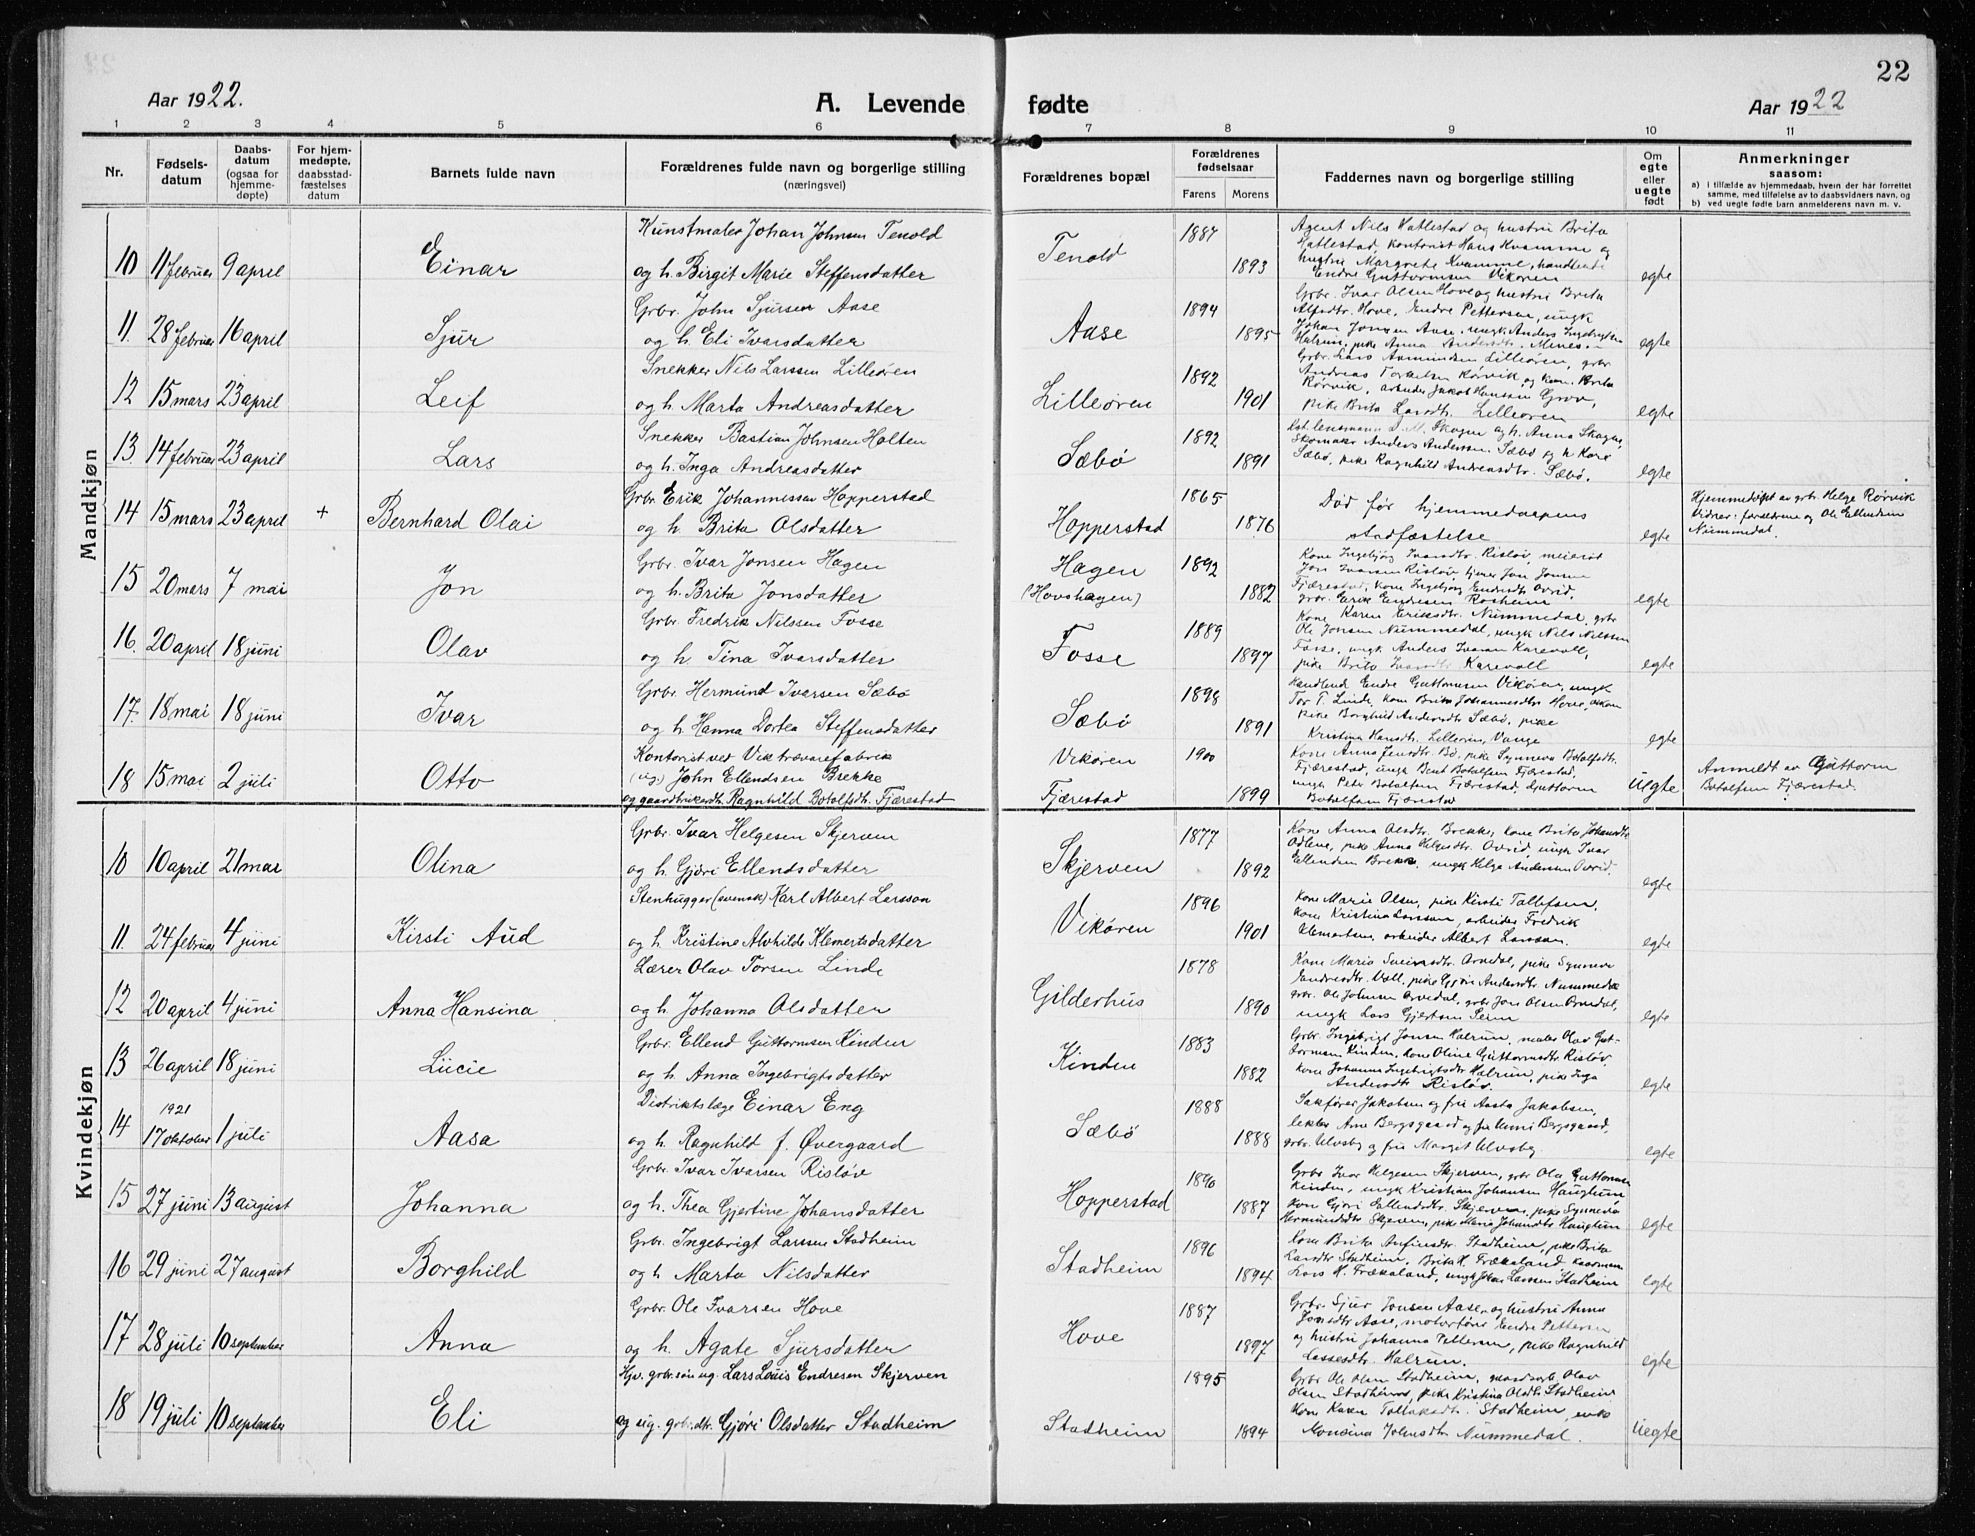 22
Aar 1922.
A. Levende fødte
Aar 1922
1 2 3 4 5 6 7 8 9 10 11
Nr.
Fødsels-
datum
Daabs-
datum
(ogsaa for
hjemme-
døpte)
For hjem-
medøpte,
daabsstad-
fæstelses
datum
Barnets fulde navn
Forældrenes fulde navn og borgerlige stilling
(næringsvei)
Forældrenes bopæl
Forældrenes
fødselsaar
Farens Morens
Faddernes navn og borgerlige stilling
Om
egte
eller
uegte
født
Anmerkninger
saasom:
a) I tilfælde av hjemmedaab, hvem der har forrettet
samme, med tilføielse av to daabsvidners navn, og
b) ved uegte fødte barn anmelderens navn m. v.
Mandkjøn
Kunstmaler Johan Johnsen Tenold 1887 Agent Nils Hatlestad og hustru Brita
Hatlestad, kontorist Hans Kvamme og
10 11 februar 9 april Einar og h. Birgit Marie Steffensdatter Tenold 1893 hustru Margrete Kvamme, handlende egte
Endre Guttormsen Vikøren
Grbr. John Sjursen Aase 1894 Grbr. Ivar Olsen Hove og hustru Brita
Hove, Endre Pettersen, ungk
11. 28 februar 16 april Sjur og h. Eli Ivarsdatter Aase 1895 Johan Jonsen Aase, ungk Anders egte
Halrum, pike Anna
Snekker Nils Larssen Lilleøren 1892 Grbr. Lars Lilleøren, grbr
Andreas Rørvik, og kone Brita
12 15 mars 23 april Leif og h. Marta Andreasdatter Lilleøren 1901 Rørvik, arbeider Jakob Hansen Grov, egte
pike Brita Larsdtr. Lilleøren
Snekker Bastian Johnsen Holten 1892 lensmann Skagen og h. Anna Skagen,
Skomaker Anders Anderssen Sæbø og h Kari
13 14 februar 23 april Lars og h. Inga Andreasdatter Sæbø 1891 Sæbø, pike Ragnhild Andreasdtr. Sæbø. egte
Grbr Erik Johannessen Hopperstad 1865 Død før hjemmedaapens Hjemmedøpt av grbr Helge Rørvik
14 15 mars 23 april + Bernhard Olai og h. Brita Olsdatter Hopperstad 1876 stadfæstelse egte Vidner: forældrene og Ole Ellendsen
Nummedal.
Grbr. Ivar Jonsen Hagen Hagen 1892 Kone Ingebjørg Ivarsdtr. Risløv, meierist
Jon Ivarsen Risløv, tjener Jon Jonsen
15 20 mars 7 mai Jon og h. Brita Jonsdatter (Hovshagen) 1882 Fjærestad, kone Ingebjørg Endresdtr Ovrid, egte
grbr. Erik Endresen Rosheim
Grbr. Fredrik Nilssen Fosse 1889 Kone Karen Eriksdtr. Nummedal, grbr
Ole Jonsen Nummedal, ungk Nils Nilssen
16. 20 april 18 juni Olav og h. Tina Ivarsdatter Fosse 1897 Fosse, ungk Anders Ivarsen Karevoll, egte
pike Brita Ivarsdtr Karevoll
Grbr. Hermund Ivarsen Sæbø 1898 Handlende Endre Guttormsen Vikøren, ungk
Tor T. Linde, kone Brita Johannesdtr Hove,
17. 18 mai 18 juni Ivar og h. Hanna Dortea Steffensdatter Sæbø 1891 pike Borghild Andersdtr Sæbø, pike egte
Kristina Hansdtr. Lilleøren, Vange
Kontorist ved Vik trævarefabrik Vikøren 1900 Kone Anna Jensdtr. Bø, pike Synneva Botolfsdtr.
18 15 mai 2 juli Otto (ug.) John Ellendsen Brekke Fjærestad, ungk Bend Botolfsen Fjærestad, uegte Anmeldt av Guttorm
og gaardbrukerdtr. Ragnhild Botolfsdtr. Fjærestad Fjærestad 1899 ungk Peter Botolfsen Fjærestad, Guttorm Botolfsen Fjærestad.
Botolfsen Fjærestad
Kvindekjøn
Grbr. Ivar Helgesen Skjerven 1877 Kone Anna Olsdtr. Brekke, kone Brita Johansdtr
pike Anna Helgesdtr. Ovrid, ungk Ivar
10 10 april 21 mai Olina og h. Gjøri Ellendsdatter Skjerven 1892 Ellendsen Brekke, ungk Helge Andersen Ovrid. egte
Stenhugger (svensk) Karl Albert Larsson 1896 Kone Marie Olsen, pike Kirsti Tollefsen,
kone Kristina Larssen, arbeider Fredrik
11. 24 februar 4 juni Kirsti Aud og h. Kristine Alvhilde Klemertsdatter Vikøren 1901 Klemertsen, arbeider Albert Larsson. egte
Lærer Olav Torsen Linde 1878 Kone Maria Sveinsdtr. Orvedal, pike Synneva
Endresdtr. Voll, pike Gjøri Andersdtr. Nummedal
12 20 april 4 juni Anna Hansina og h. Johanna Olsdatter Gilderhus 1890 grbr. Ole Johnsen Orvedal, grbr Jon Olsen Orvedal, egte
ungk Lars Gjertsen
Grbr. Ellend Guttormsen Kinden 1883 Grbr. Ingebrigt Jonsen Halrum, maler Olav Gut-
tormsen Kinden, kone Oline Guttormsdtr Risløv,
13 26 april 18 juni Lucie og h. Anna Ingebrigtsdatter Kinden 1882 kone Johanna Ingebrigtsdtr Halrum, pike Inga egte
Andersdtr Risløv.
1921 Distriktslæge Einar Eng 1888 Sakfører Jakobsen og fru Aasta Jakobsen,
14 17 oktober 1 juli Aasa og h. Ragnhild f. Øvergaard Sæbø 1888 lektor Arne Bergsgaard og fru Unni Bergsgaard, egte
grbr. Ulvsby og fru Margit Ulvsby.
Grbr. Ivar Ivarsen Risløv 1890 Grbr Ivar Helgesen Skjerven, grbr Ola Guttormsen
Kinden, ungk Kristian Johansen Hauglum
15 27 juni 13 august Johanna og h. Thea Gjertine Johansdatter Hopperstad 1887 kone Gjøri Ellendsdtr. Skjerven, pike Synneva egte
Hermundsdtr Skjerven, pike Maria Johansdtr Hauglum
Grbr. Ingebrigt Larssen Stadheim 1896 Kone Brita Anfinsdtr. Stadheim, pike Brita
Larsdtr Stadheim, Brita H. Frækaland,
16 29 juni 27 august Borghild og h Marta Nilsdatter Stadheim 1894 Lars H. Frækaland, ungk Johan Larssen Stadheim egte
Grbr. Ole Ivarsen Hove 1887 Grbr. Sjur Jonsen Aase, og hustru Anna
Jonsdtr Aase, motorfører Endre Pettersen
17 28 juli 10 september Anna og h. Agate Sjursdatter Hove 1897 og hustru Johanna Pettersen, pike Ragnhild egte
Lassesdtr. Halrum.
Hjv. grbr.søn ug. Lars Louis Endresen Skjerven 1895 Grbr Ole Olsen Stadheim, Olav
Olsen Stadheim, pike Kristina Olsdtr Stadheim
18 19 juli 10 september Eli og sig. grbr.dtr. Gjøri Olsdatter Stadheim Stadheim 1894 kone Karen Stadheim, enke uegte
Monsina Johnsdtr Nummedal.